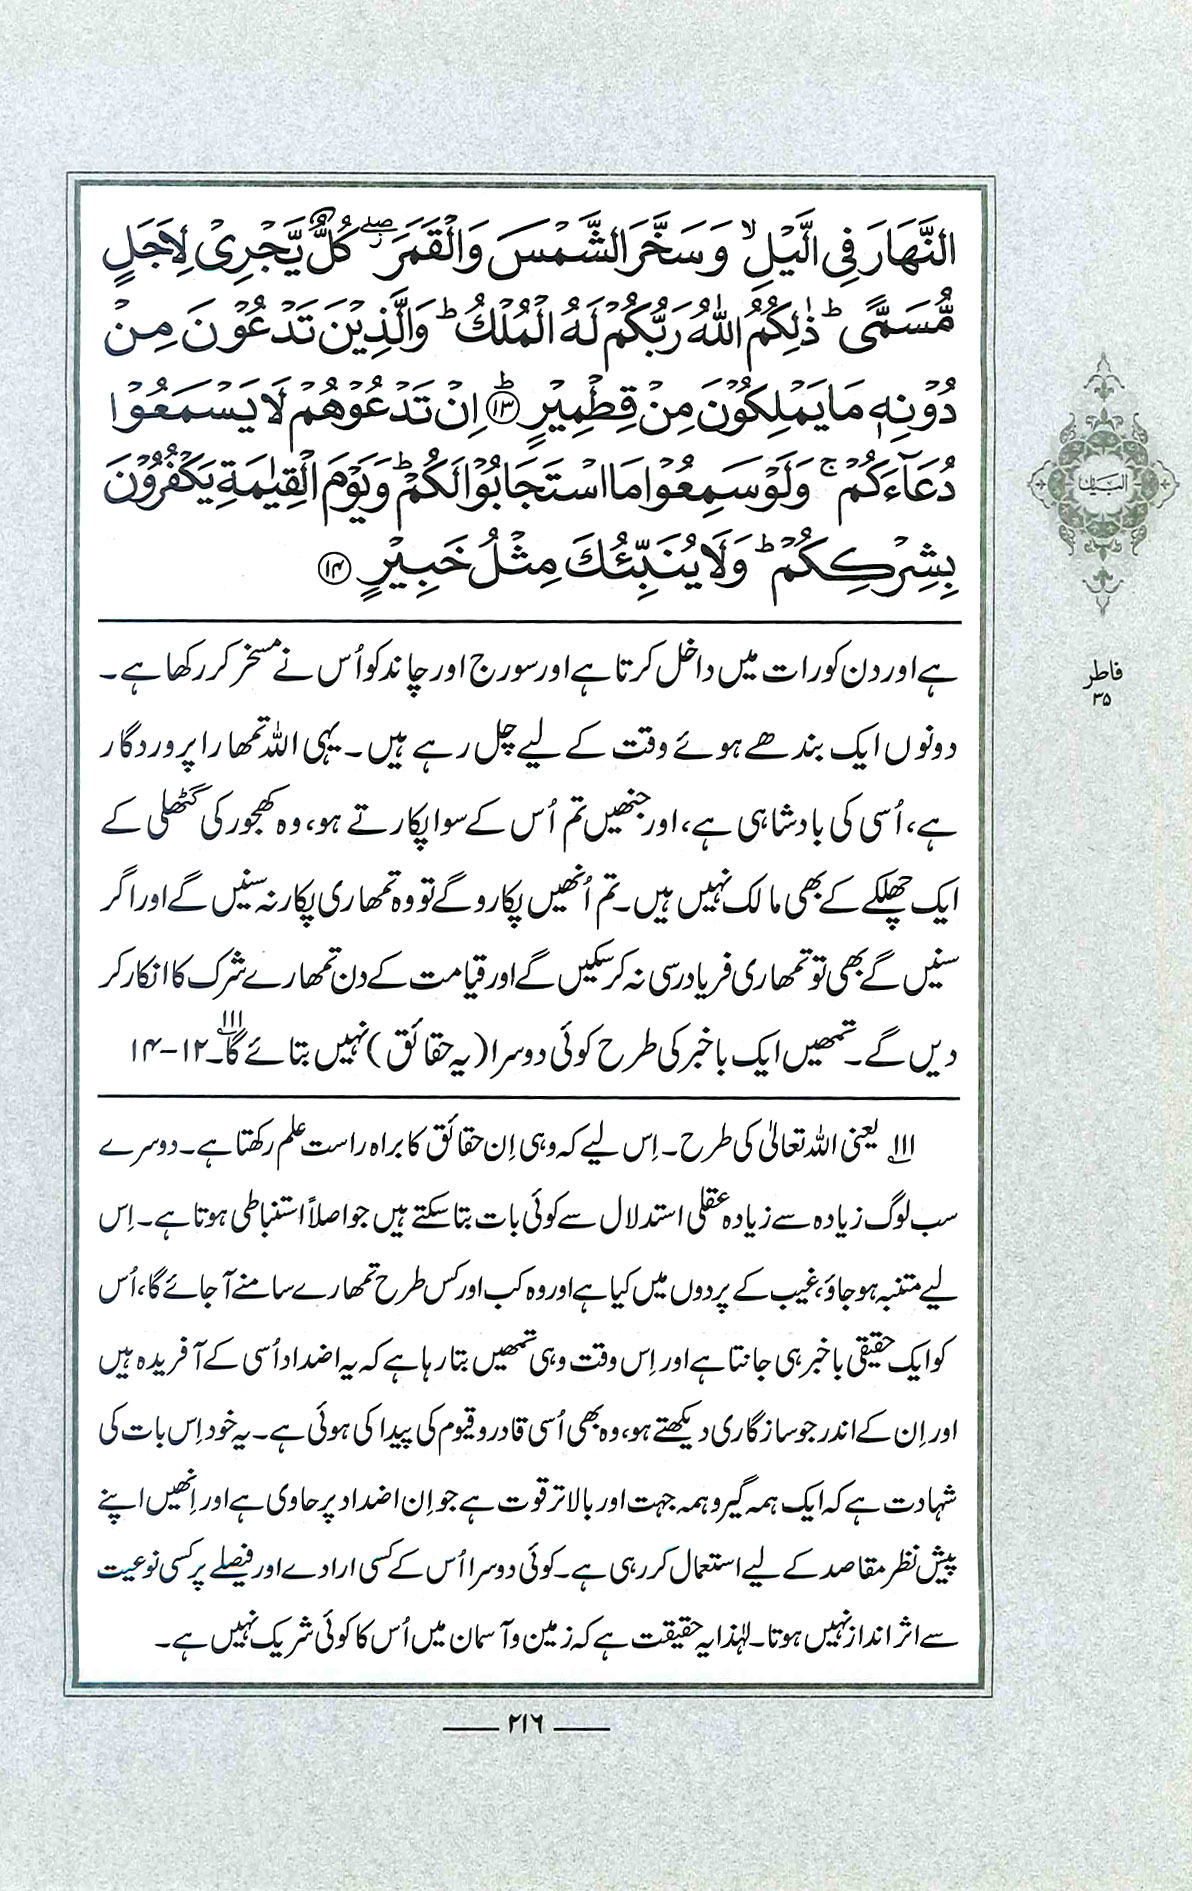 النَّهَارَ فِي الَّيْلِ ۙ وَسَخَّرَ الشَّمْسَ وَالْقَمَرَ ۖ كُلٌّ يَّجْرِيْ لِاَجَلٍ
مُّسَمًّى ؕ ذٰلِكُمُ اللّٰهُ رَبُّكُمْ لَهُ الْمُلْكُ ؕ وَالَّذِيْنَ تَدْعُوْنَ مِنْ
دُوْنِهٖ مَا يَمْلِكُوْنَ مِنْ قِطْمِيْرٍ ؕ ﴿۱۳﴾ اِنْ تَدْعُوْهُمْ لَا يَسْمَعُوْا
دُعَآءَكُمْ ۚ وَلَوْ سَمِعُوْا مَا اسْتَجَابُوْا لَكُمْ ؕ وَيَوْمَ الْقِيٰمَةِ يَكْفُرُوْنَ
بِشِرْكِكُمْ ؕ وَلَا يُنَبِّئُكَ مِثْلُ خَبِيْرٍ ﴿۱۴﴾
ہے اور دن کو رات میں داخل کرتا ہے اور سورج اور چاند کو اُس نے مسخر کر رکھا ہے۔
دونوں ایک بندھے ہوئے وقت کے لیے چل رہے ہیں۔ یہی اللہ تمھارا پروردگار
ہے، اُسی کی بادشاہی ہے، اور جنھیں تم اُس کے سوا پکارتے ہو، وہ کھجور کی گٹھلی کے
ایک چھلکے کے بھی مالک نہیں ہیں۔ تم اُنھیں پکارو گے تو وہ تمھاری پکار نہ سنیں گے اور اگر
سنیں گے بھی تو تمھاری فریاد رسی نہ کر سکیں گے اور قیامت کے دن تمھارے شرک کا انکار کر
دیں گے۔ تمھیں ایک باخبر کی طرح کوئی دوسرا (یہ حقائق) نہیں بتائے گا۱۱۱۔ ۱۲-۱۴
۱۱۱ یعنی اللہ تعالیٰ کی طرح۔ اِس لیے کہ وہی اِن حقائق کا براہ راست علم رکھتا ہے۔ دوسرے
سب لوگ زیادہ سے زیادہ عقلی استدلال سے کوئی بات بتا سکتے ہیں جو اصلاً استنباطی ہوتا ہے۔ اِس
لیے متنبہ ہو جاؤ، غیب کے پردوں میں کیا ہے اور وہ کب اور کس طرح تمھارے سامنے آ جائے گا، اُس
کو ایک حقیقی باخبر ہی جانتا ہے اور اِس وقت وہی تمھیں بتا رہا ہے کہ یہ اضداد اُسی کے آفریدہ ہیں
اور اِن کے اندر جو سازگاری دیکھتے ہو، وہ بھی اُسی قادر و قیوم کی پیدا کی ہوئی ہے۔ یہ خود اِس بات کی
شہادت ہے کہ ایک ہمہ گیر و ہمہ جہت اور بالاتر قوت ہے جو اِن اضداد پر حاوی ہے اور اِنھیں اپنے
پیش نظر مقاصد کے لیے استعمال کر رہی ہے۔ کوئی دوسرا اُس کے کسی ارادے اور فیصلے پر کسی نوعیت
سے اثر انداز نہیں ہوتا۔ لہٰذا یہ حقیقت ہے کہ زمین و آسمان میں اُس کا کوئی شریک نہیں ہے۔
البیان
فاطر
۳۵
۲۱۶